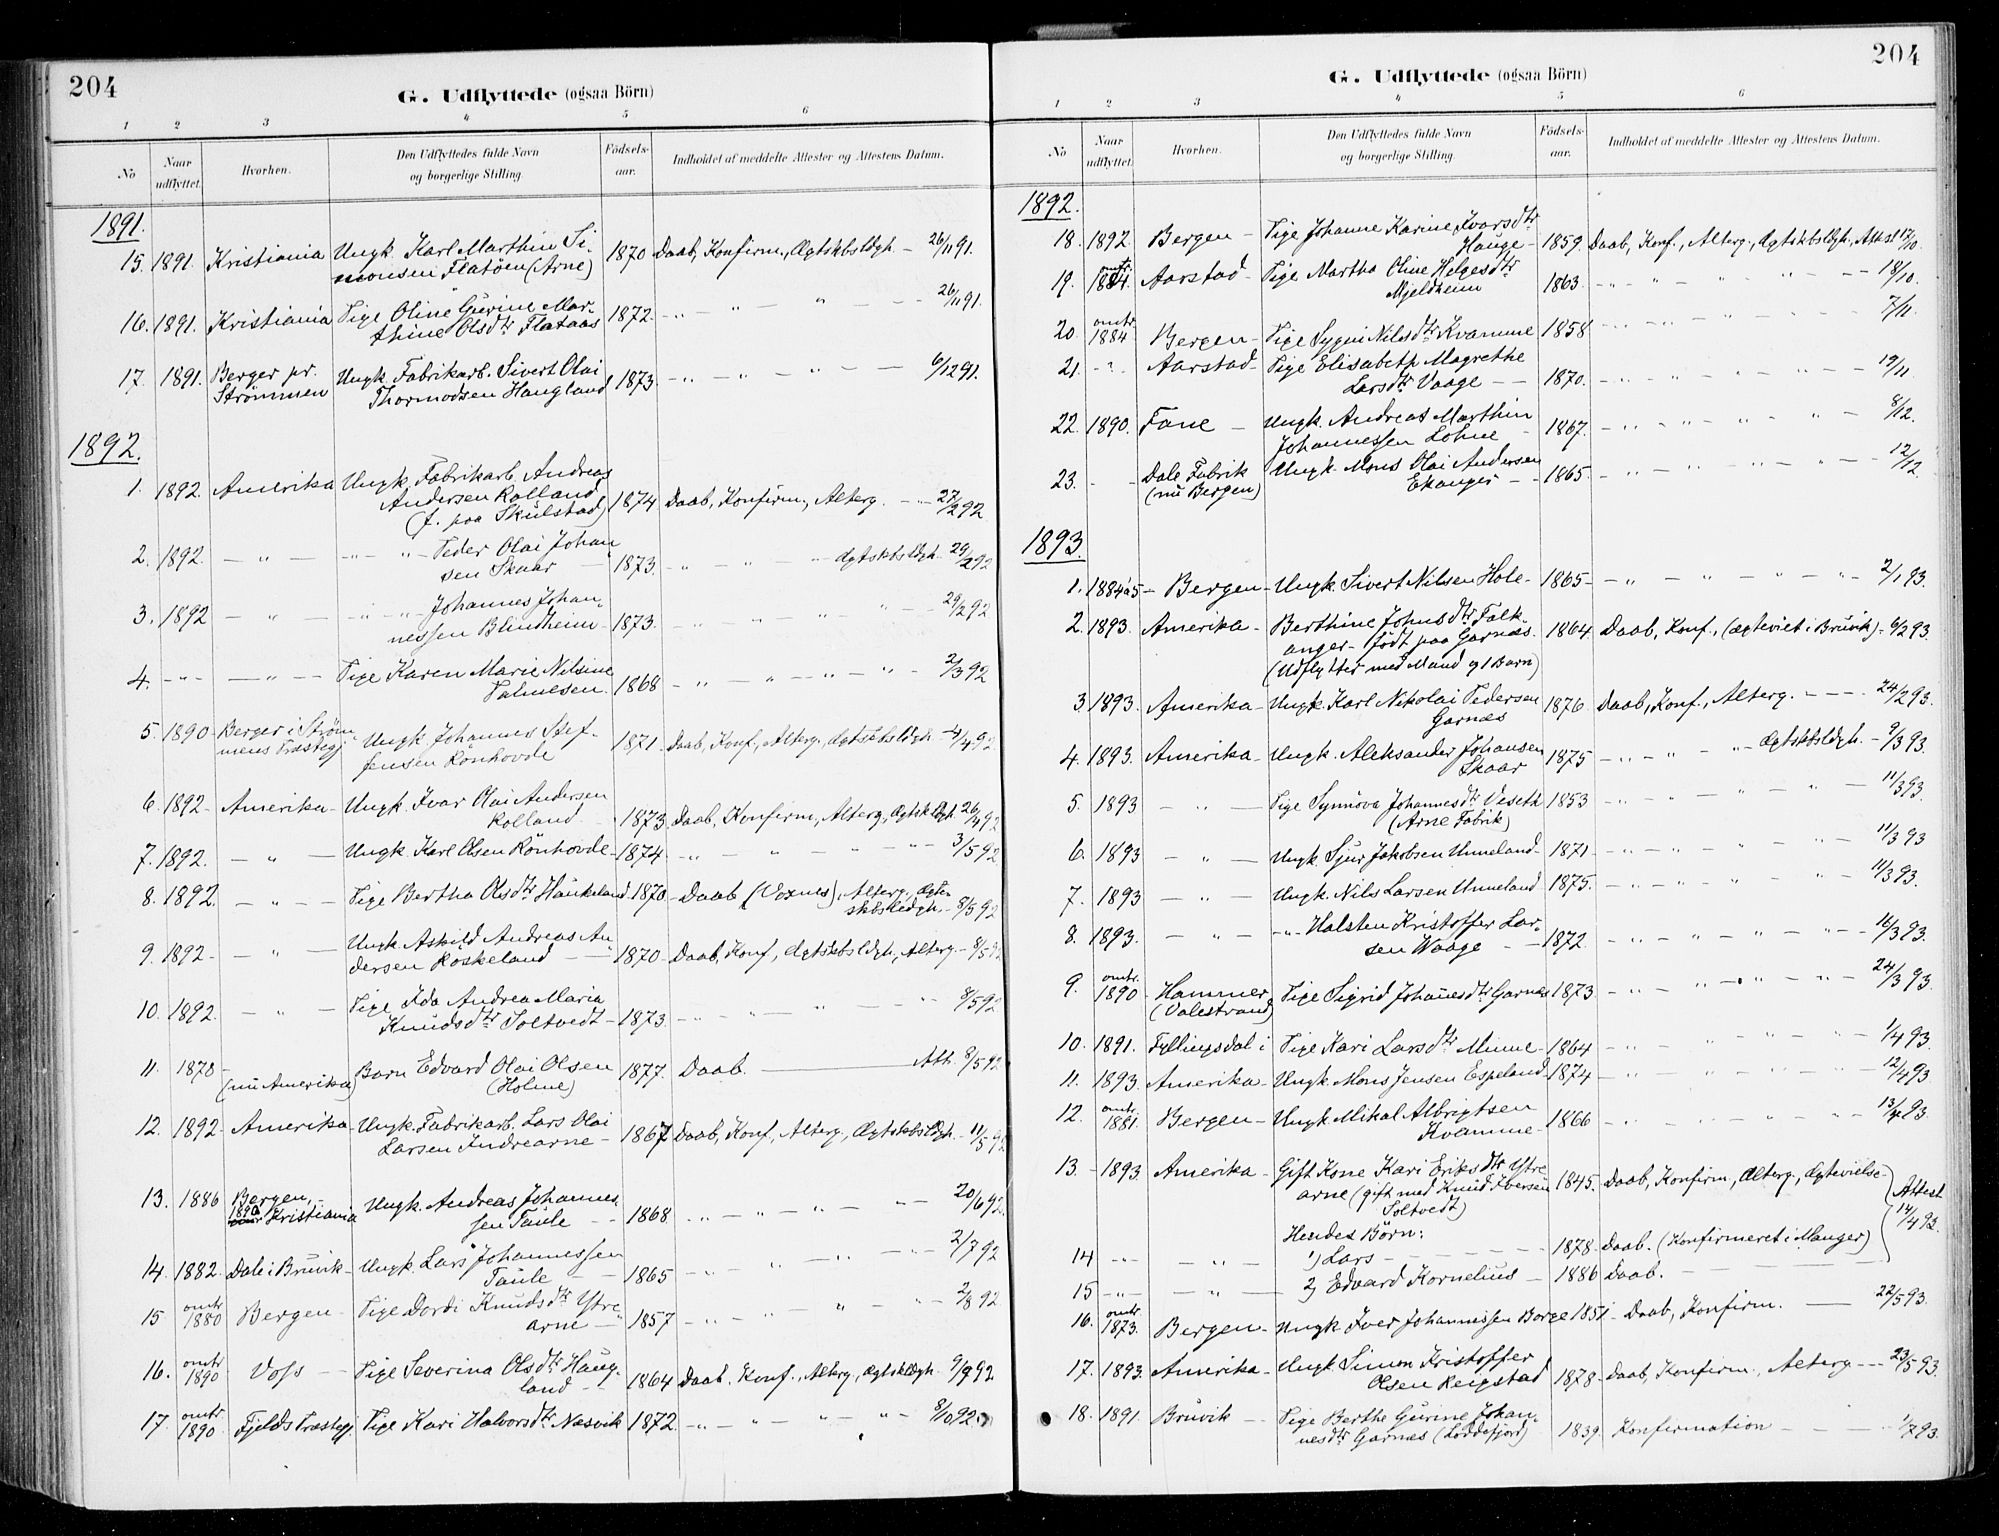 204
G. Udflyttede (ogsaa Börn)
1 2 3 4 5 6
No Naar udflyttet. Hvorhen. Den Udflyttedes fulde Navn og borgerlige Stilling. Födsels-aar. Indholdet af meddelte Attester og Attestens Datum.
1891.
15. 1891. Kristiania Ungk. Karl Marthin Si- 1870 Daab, Konfirm., Ægtskbsldgh. – 26/11 91.
monsen Flatöen (Arne)
16. 1891. Kristiania Tige Oline Gurine Mar- 1872. – „ – „ – „ – – 26/11 91.
thine Olsdtr Flataas
17. 1891. Berger pr. Ungk. Fabrikarb. Sivert Olai 1873. – „ – „ – „ – – 6/12 91.
Strömmen Thormodsen Haugland
1892.
1. 1892. Amerika Ungk. Fabrikarb. Andreas
Andersen Rolland 1874 Daab, Konfirm., Alterg. – – 27/2 92
(f. paa Skulstad)
2. 1892. – „ – – „ – „ – Peder Olai Johan
sen Skaar – 1873. – „ – „ – „ – Ægtskbsldgh. 29/2 92
3. 1892 – „ – – „ – „ – Johannes Johan-
nessen Blindheim – 1873. – „ – „ – „ – 29/2 92
4. – „ – – „ – Tige Karen Marie Nilsine
Palmesen 1868 – „ – „ – „ – „ – 2/3 92
5. 1890 – Berger i Ström- Ungk. Johannes Stef-
mens Præstegj. fensen Rönhovde 1871. Daab, Konf., Alterg., Ægtskbsldgh. – 4/4 92
6. 1892 – Amerika – Ungk. Ivar Olai Andersen
Rolland 1873 Daab, Konfirm., Alterg., Ægtskldgh. 26/4 92
7. 1892. – „ – Ungk. Karl Olsen Rönhovde – 1874 – „ – „ – „ – „ – 3/5 92
8. 1892. – „ – Tige Bertha Olsdtr Haukeland 1870 – Daab (Voxnes), Alterg., Ægte-
skbsledgh. – 8/5 92
9. 1892 – – „ – Ungk. Askild Andreas An-
dersen Röskeland – 1870 – Daab, Konf., Ægtskbsldgh., Alterg – 8/5 92
10. 1892. – „ – Tige Ida Andrea Maria
Knudsdtr Soltvedt – 1873. – „ – „ – „ – „ – 8/5 92
11. 1878 – (nu Amerika) Barn Edvard Olai Olsen
(Holme) 1877. Daab. – Att. 8/5 92
12. 1892 – Amerika – Ungk. Fabrikarb. Lars Olai
Larsen Indrearne – 1867 Daab, Konf., Alterg., Ægtskbsldgh. – 11/5 92
13. 1886 Bergen, – Ungk. Andreas Johannes-
1890 Kristiania sen Taule – 1868. – „ – „ – „ – „ – 20/6 92
14. 1882. Dale i Bruvik – Ungk. Lars Johannessen
Taule – 1865 – „ – „ – „ – „ – 2/7 92
15 omtr 1880 Bergen – Tige Dordi Knudsdtr Ytre
arne – 1857 – „ – „ – „ – „ – 2/8 92
16. omtr 1890 Voss – Tige Severina Olsdtr Haug-
land – 1864 Daab, Konf., Alterg., Ægtskldgh. 9/9 92
17. omtr 1890. Fjelds Præstegj. Tige Kari Halvorsdtr Næsvik 1872. – „ – „ – „ – „ – 8/10 92.
204
G. Udflyttede (ogsaa Börn)
1 2 3 4 5 6
No Naar udflyttet. Hvorhen. Den Udflyttedes fulde Navn og borgerlige Stilling. Födsels-aar. Indholdet af meddelte Attester og Attestens Datum.
1892.
18. 1892. Bergen – Tige Johanne Karine Ivarsdtr
Hauge – 1859. Daab, Konf., Alterg., Ægtskbsldgh., Attest 12/10.
19. omtr 1884. Aarstad – Tige Martha Oline Helgesdtr
Mjeldheim 1863. – „ – „ – „ – „ – 18/10.
20. omtr 1884 Bergen – Tige Sygni Nilsdtr Kvamme 1858 – „ – „ – „ – 7/11.
21. – „ – Aarstad – Tige Elisabeth Magrethe
Larsdtr Vaage – – 1870. – „ – „ – „ – „ – 19/11.
22. 1890. Fane – Ungk. Andreas Marthin
Johannessen Lohne – 1867. – „ – „ – „ – „ – 8/12.
23. – – Dale Fabrik Ungk. Mons Olai Andersen
(nu Bergen) Ekanger – – 1865 – – „ – „ – „ – „ – 12/12.
1893.
1. 1884 à 5 – Bergen – Ungk. Sivert Nilsen Hole – 1865 – – „ – „ – „ – „ – 2/1 93.
2. 1893. Amerika – Berthine Johnsdtr Falk-
anger – født paa Garnæs. 1864 Daab, Konf., (ægteviet i Bruvik) – 6/2 93.
(Udflytter med Mand og 1 Barn)
3. 1893. Amerika – Ungk. Karl Nikolai Pedersen
Garnæs 1876 Daab, Konf., Alterg. – – – 24/2 93.
4. 1893. Amerika – Ungk. Aleksander Johansen
Skaar 1875 – „ – „ – „ – Ægtskbsldgh. – 9/3 93.
5. 1893 – „ – Tige Synnöva Johannesdtr Veseth 1853 – „ – „ – „ – „ – 11/3 93.
(Arne Fabrik)
6. 1893 – „ – Ungk. Sjur Jakobsen Unneland – 1871 – „ – „ – „ – „ – 11/3 93
7. 1893 – „ – Ungk. Nils Larsen Unneland 1875. – „ – „ – „ – „ – 11/3 93.
8. 1893. – „ – – „ – Halsten Kristoffer Lar-
sen Waage – – 1872. – „ – „ – „ – „ – 16/3 93.
9. omtr. 1890 – Hammer Tige Sigrid Johannesdtr Garnæs 1873 – „ – „ – „ – „ – 24/3 93.
(Valestrand)
10. 1891. Fyllingsdal i Tige Kari Larsdtr Minne – 1864 – „ – „ – „ – „ – 1/4 93.
11. 1893. Amerika – Ungk. Mons Jensen Espeland – 1874 – „ – „ – „ – „ – 12/4 93
12. omtr. 1881. Bergen – Ungk. Mikal Albrigtsen
Kvamme 1866 – „ – „ – „ – „ – 13/4 93.
13. – 1893. Amerika – Gift Kone Kari Eriksdtr Ytre
arne (gift med Knud Iversen 1845. Daab, Konfirm., Alterg., Ægtevielse – Attest 14/4 93.
Soltvedt)
Hendes Börn:
14 – „ – – „ – 1) Lars – – – – 1878 Daab. (Konfirmeret i Manger)
15 – „ – – „ – 2) Edvard Kornelius – 1886 Daab. –
16. omtr. 1873. Bergen – Ungk. Iver Johannessen Borge 1851 – Daab, Konfirm. – 22/5 93.
17. 1893. Amerika – Ungk. Simon Kristoffer
Olsen Reigstad 1878 – Daab, Konfirm., Alterg – – – 23/5 93.
18. 1891. Bruvik – Tige Berthe Gurine Johan-
nesdtr Garnæs (Loddefjord) 1839. Konfirmation – – – 1/7 93.